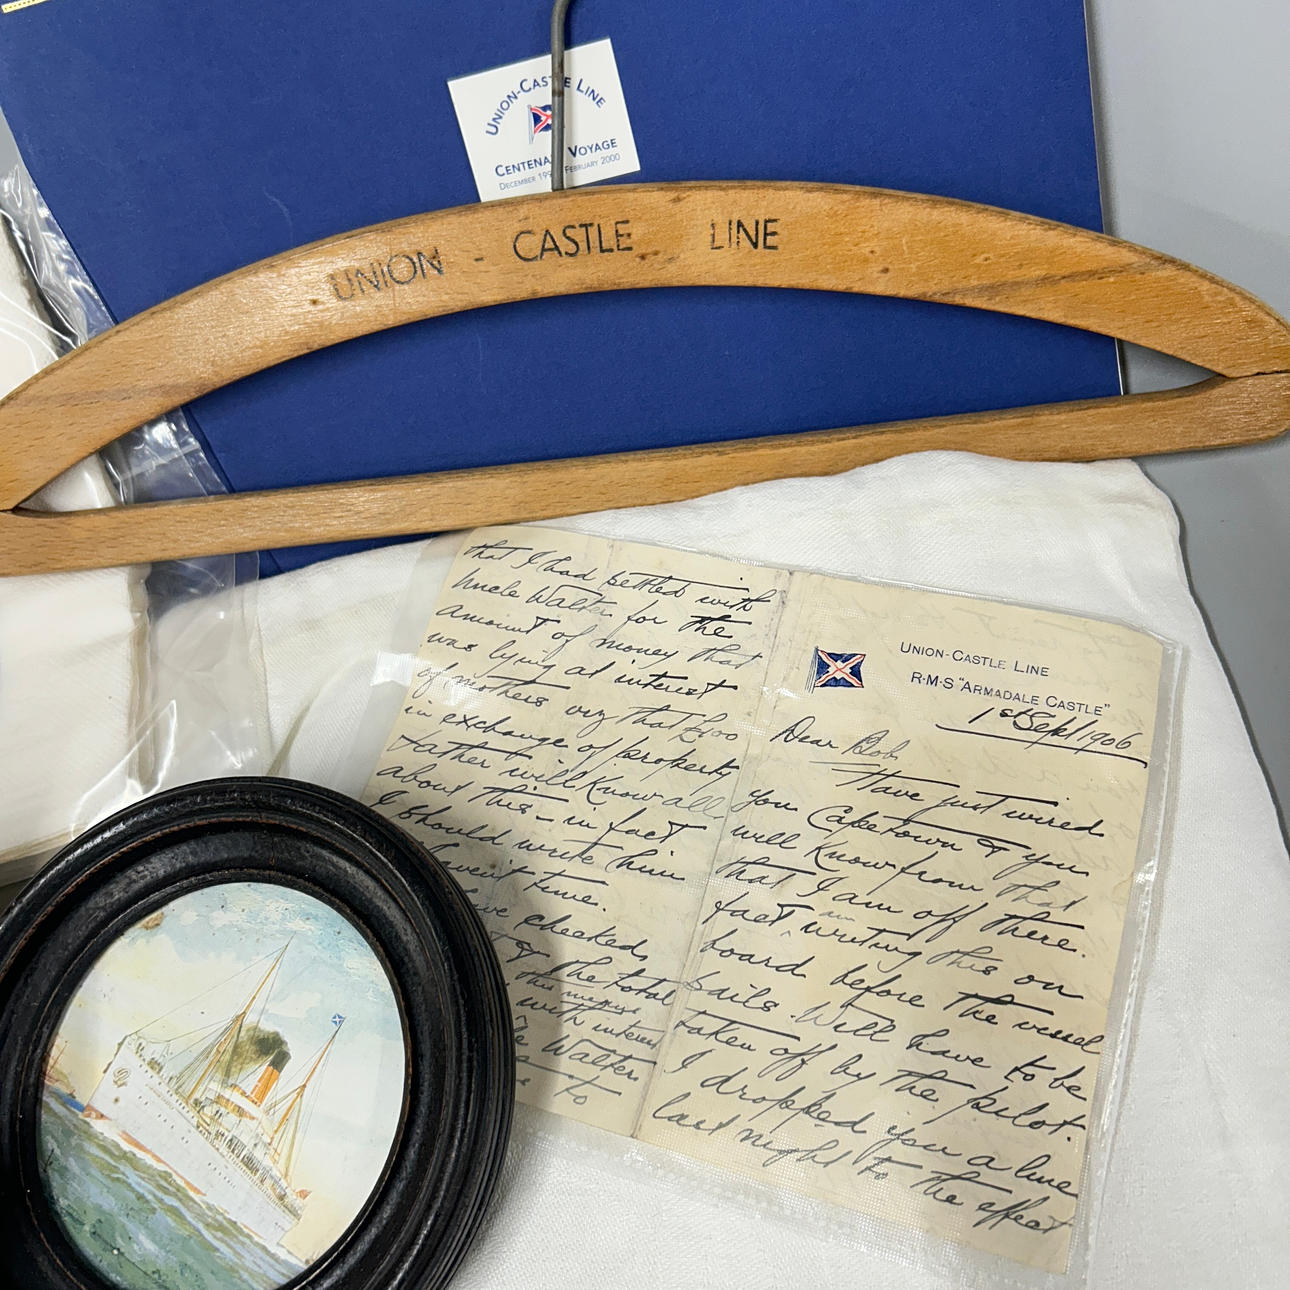 UNION-CASTLE LINE
CENTENA VOYAGE
DECEMBER 199 FEBRUARY 2000
UNION - CASTLE LINE
UNION-CASTLE LINE
R·M·S "ARMADALE CASTLE"
1st Sept 1906
Dear Bob
Have just wired
you Capetown & you
will know from that
that I am off there.
fact, am writing this on
board before the vessel
sails. Will have to be
taken off by the pilot.
I dropped you a line
last night to the effect
that I had settled with
Uncle Walter for the
amount of money that
was lying at interest
of mothers viz that £100
in exchange of property
Father will know all
about this - in fact
I should write him
time.
checked
& the total
this means
with interest
Walter
to